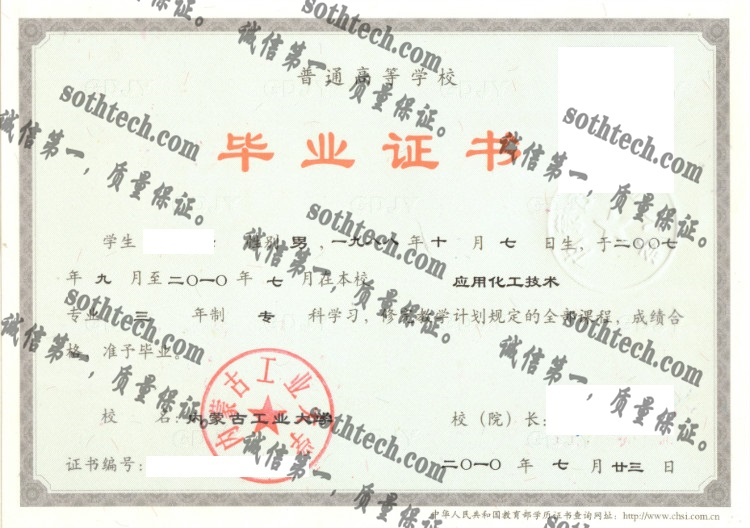 普通高等学校
毕业证书
学生 性别 男 , 一九八八 年 十 月 七 日生, 于二〇〇七
年 九 月至二〇一〇年 七 月在本校 应用化工技术
专业 三 年制 专 科学习, 修完教学计划规定的全部课程, 成绩合
格, 准予毕业。
内蒙古工业大学
校 名: 内蒙古工业大学
校（院）长:
证书编号:
二〇一〇 年 七 月 廿三 日
中华人民共和国教育部学历证书查询网址: http://www.chsi.com.cn
sothtech.com
诚信第一，质量保证。
sothtech.com
诚信第一，质量保证。
sothtech.com
诚信第一，质量保证。
sothtech.com
诚信第一，质量保证。
sothtech.com
诚信第一，质量保证。
sothtech.com
诚信第一，质量保证。
sothtech.com
诚信第一，质量保证。
sothtech.com
诚信第一，质量保证。